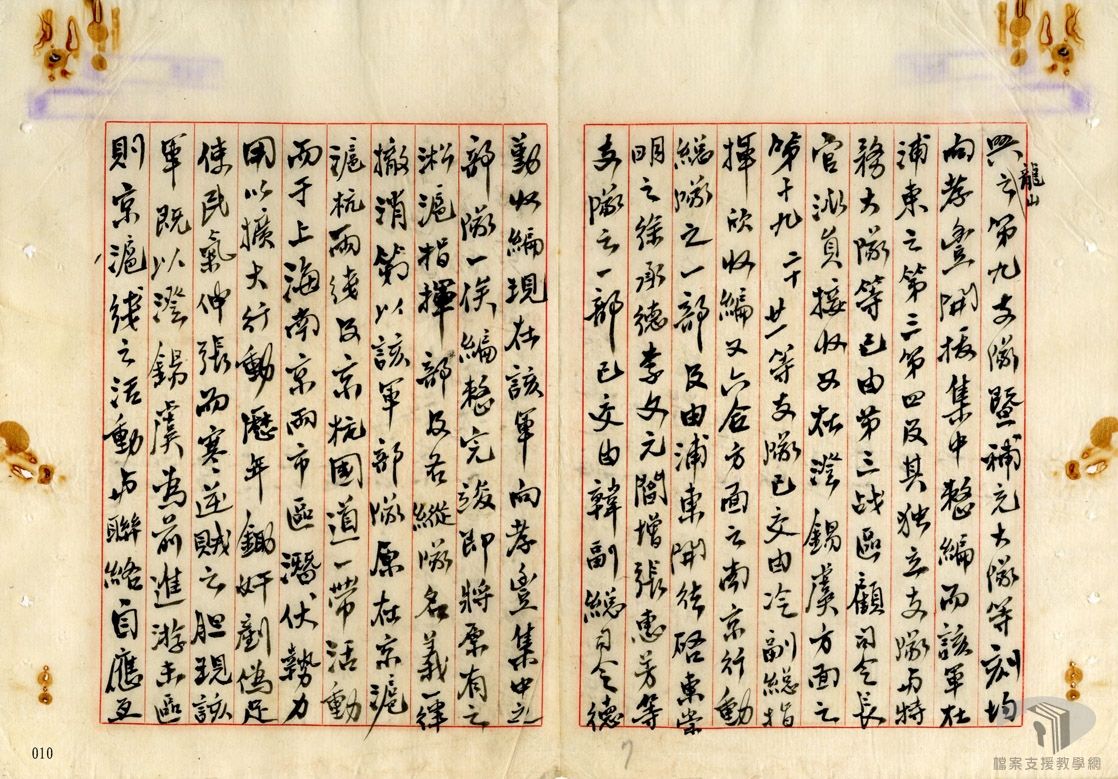 興之第九支隊暨補充大隊等刻均
龍山
向孝豐開拔集中整編而該軍在
浦東之第三第四及其独立支隊与特
務大隊等已由第三战區顧司令長
官派員接收又在澄錫虞方面之
第十九二十廿一等支隊已交由冷副總指
揮欣收編又六合方面之南京行動
總隊之一部及由浦東開往硌東崇
明之徐承德李文元閻增張惠芳等
支隊之一部已交由韓副總司令德
勤收編現在該軍向孝豐集中之
部隊一俟編整完竣即將原有之
淞滬指揮部及各縱隊名義一律
撤消第以該軍部隊原在京滬
滬杭兩线及京杭國道一帶活動
而于上海南京兩市區潛伏勢力
用以擴大行動歷年鋤奸劊偽足
使民氣伸張而寒逆賊之胆現該
軍既以澄錫虞為前進游击區
則京滬线之活動与聯絡自應互
010
7
檔案支援教學網